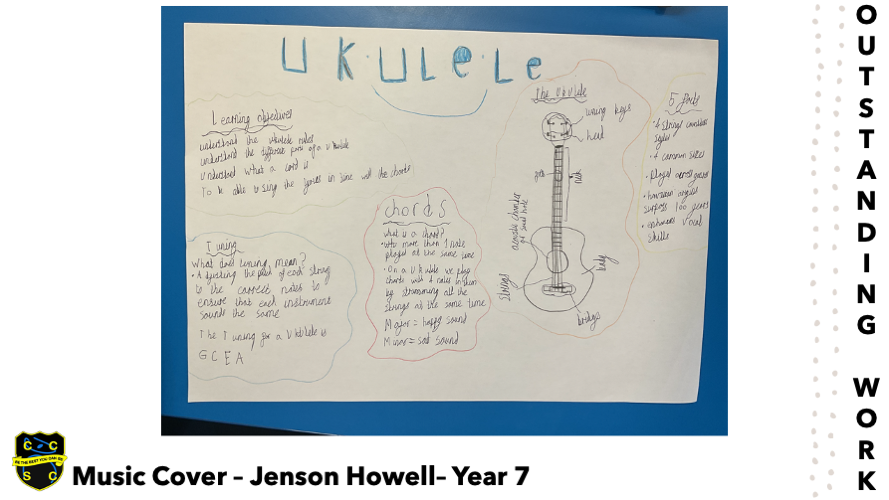 UKULELE
Learning objectives
understand the ukulele notes
understand the different parts of a Ukulele
Understand what a cord is
To be able to sing the in time with the chords
Tuning
What does tuning mean?
• Adjusting the of each string
to the correct notes to
ensure that each instrument
sounds the same
The Tuning for a Ukulele is
G C E A
chords
what is a chord?
more than 1 note
played at the same time
• On a Ukulele we play
with 4 notes in them
by strumming all the
strings at the same time
= happy sound
Minor = sad sound
The Ukulele
tuning keys
head
neck
acoustic chamber
or sound hole
strings
body
bridge
5 facts
• 4 strings
• 4 common sizes
• played across
100 years
vocal
skills
C C
BE THE BEST YOU CAN BE
S C
Music Cover – Jenson Howell– Year 7
OUTSTANDING WORK